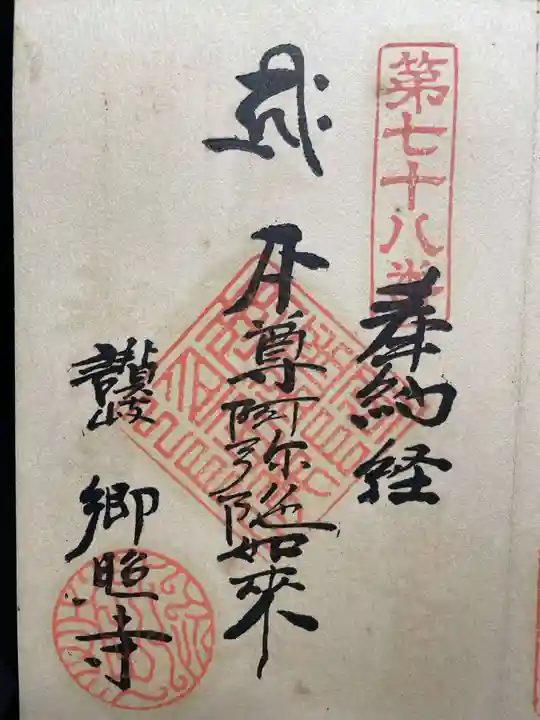 第七十八番
奉納経
本尊阿弥陀如来
讃岐
郷照寺